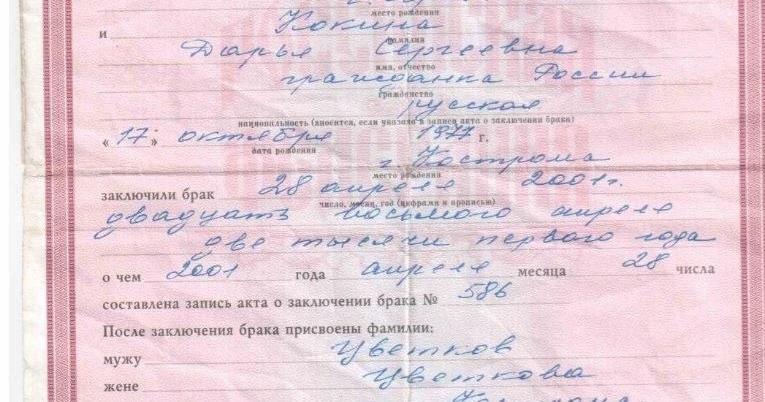 место рождения
и Кокина
фамилия
Дарья Сергеевна
имя, отчество
гражданка России
гражданство
русская
национальность (вносится, если указано в записи акта о заключении брака)
« 17 » октября 1977 г.
дата рождения
г. Кострома
место рождения
заключили брак 28 апреля 2001г.
число, месяц, год (цифрами и прописью)
двадцать восьмого апреля
две тысячи первого года
о чем 2001 года апреля месяца 28 числа
составлена запись акта о заключении брака № 586
После заключения брака присвоены фамилии:
мужу Цветков
жене Цветкова